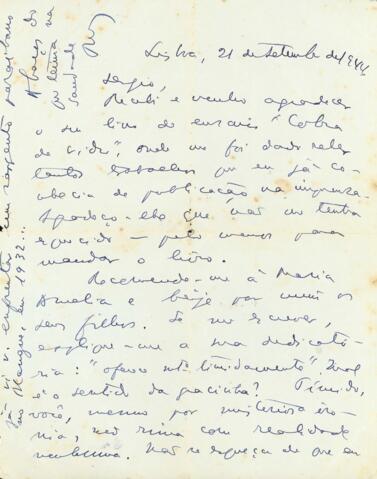 Lisboa, 21 de setembro de 1944
Sergio,
Recebi e venho agradecer
o seu livro de ensaios "Cobra
de vidro", onde me foi dado reler
tantos trabalhos que eu já co-
nhecia de publicação na imprensa.
Agradeço-lhe que não me tenha
esquecido — pelo menos para
mandar o livro.
Recomende-me à Maria
Amelia e beije por mim os
seus filhos. Se me escrever,
explique-me a sua dedicató-
ria: "oferece mto timidamente". Qual
é o sentido da gracinha? Timido,
você, mesmo por misteriosa iro-
nia, não rima com realidade
nenhuma. Não se esqueça de que eu
já vi v. enfrentar um sargento
no Mangue, em 1932...
Abraços do
saudade